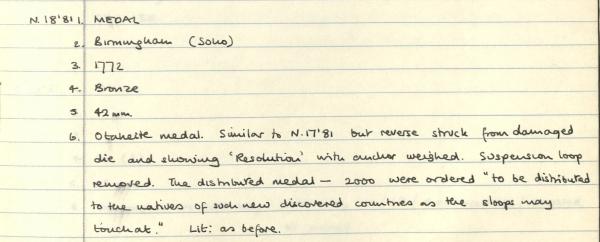 N.18'81 1. MEDAL
2. Birmingham (Soho)
3. 1772
4. Bronze
5. 42 mm.
6. Otaheite medal. Similar to N.17'81 but reverse struck from damaged
die and showing 'Resolution' with anchor weighed. Suspension loop
removed. The distributed medal — 2000 were ordered "to be distributed
to the natives of such new discovered countries as the sloops may
touch at." Lit: as before.